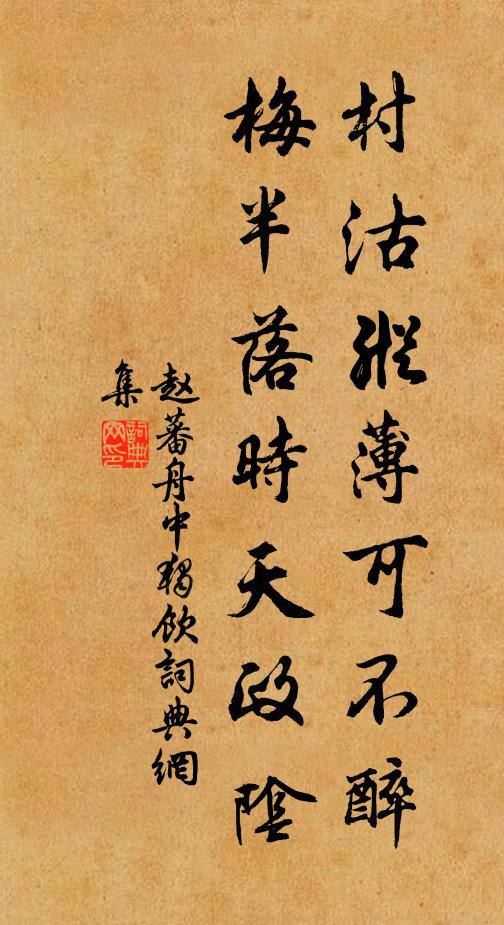 村沽縱薄可不醉
梅半落時天政陰
赵蕃舟中獨飲詞典網
集
詞典网印